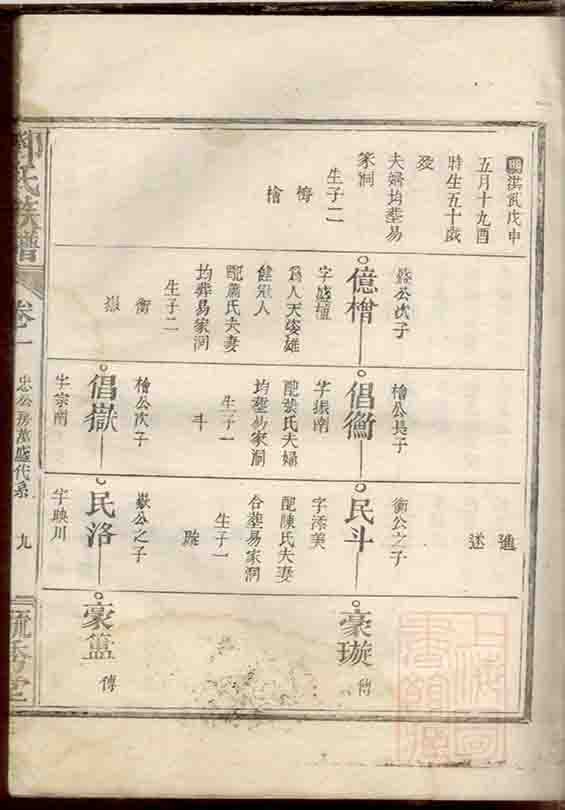 明洪武戊申
五月十九酉
時生五十歲
歿
夫婦均塟易
家洞
生子二
檜
公次子
億檜
字盛壇
爲人天姿雄
健冠人
配蕭氏夫妻
均葬易家洞
生子二
衡
嶽
檜公長子
倡衡
字振南
配黃氏夫婦
均塟易家洞
生子一
斗
檜公次子
倡嶽
字宗南
述
衡公之子
民斗
字添美
配陳氏夫妻
合塟易家洞
生子一
璇
嶽公之子
民洛
字映川
豪璇
傳
豪簋
傳
氏族譜
卷一
忠公房萬盛代系
九